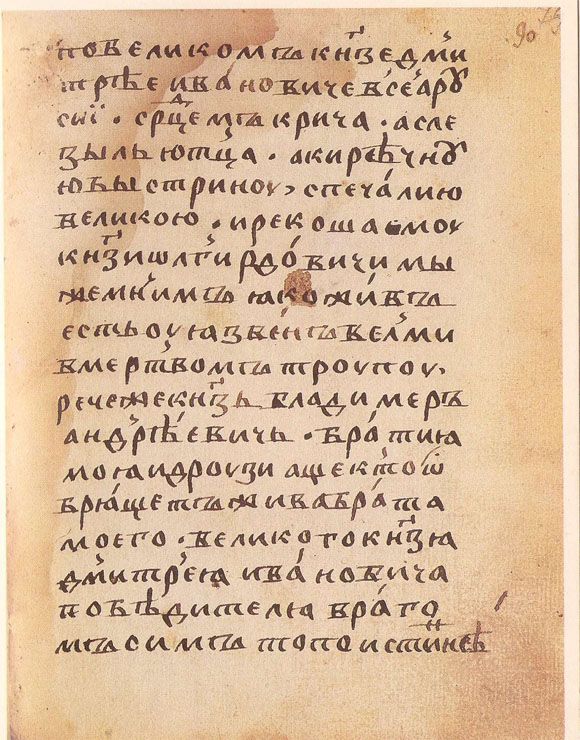 90
повеликомъ кн҃зе дми
трѣе ивановиче всеа рꙋ
сиї · ср҃дцемъ крича · а сле
зы льютца · аки рѣчнꙋ
ю быстриноу, с печалию
великою · и рекоша емоу
кн҃зи ѡлгирдовичи мы
же мнимъ ꙗко живъ
есть оуꙗзвенъ велми
в мертвомъ троупоу,
рече же кн҃зь владимеръ
андрѣевичь · братиꙗ
моꙗ и дроузи аще кто ѿ
брꙗщетъ жива брата
моего · великого кн҃зꙗ
дмитреꙗ ивановича
побѣдителю враго
мъ симъ то поистиннѣ